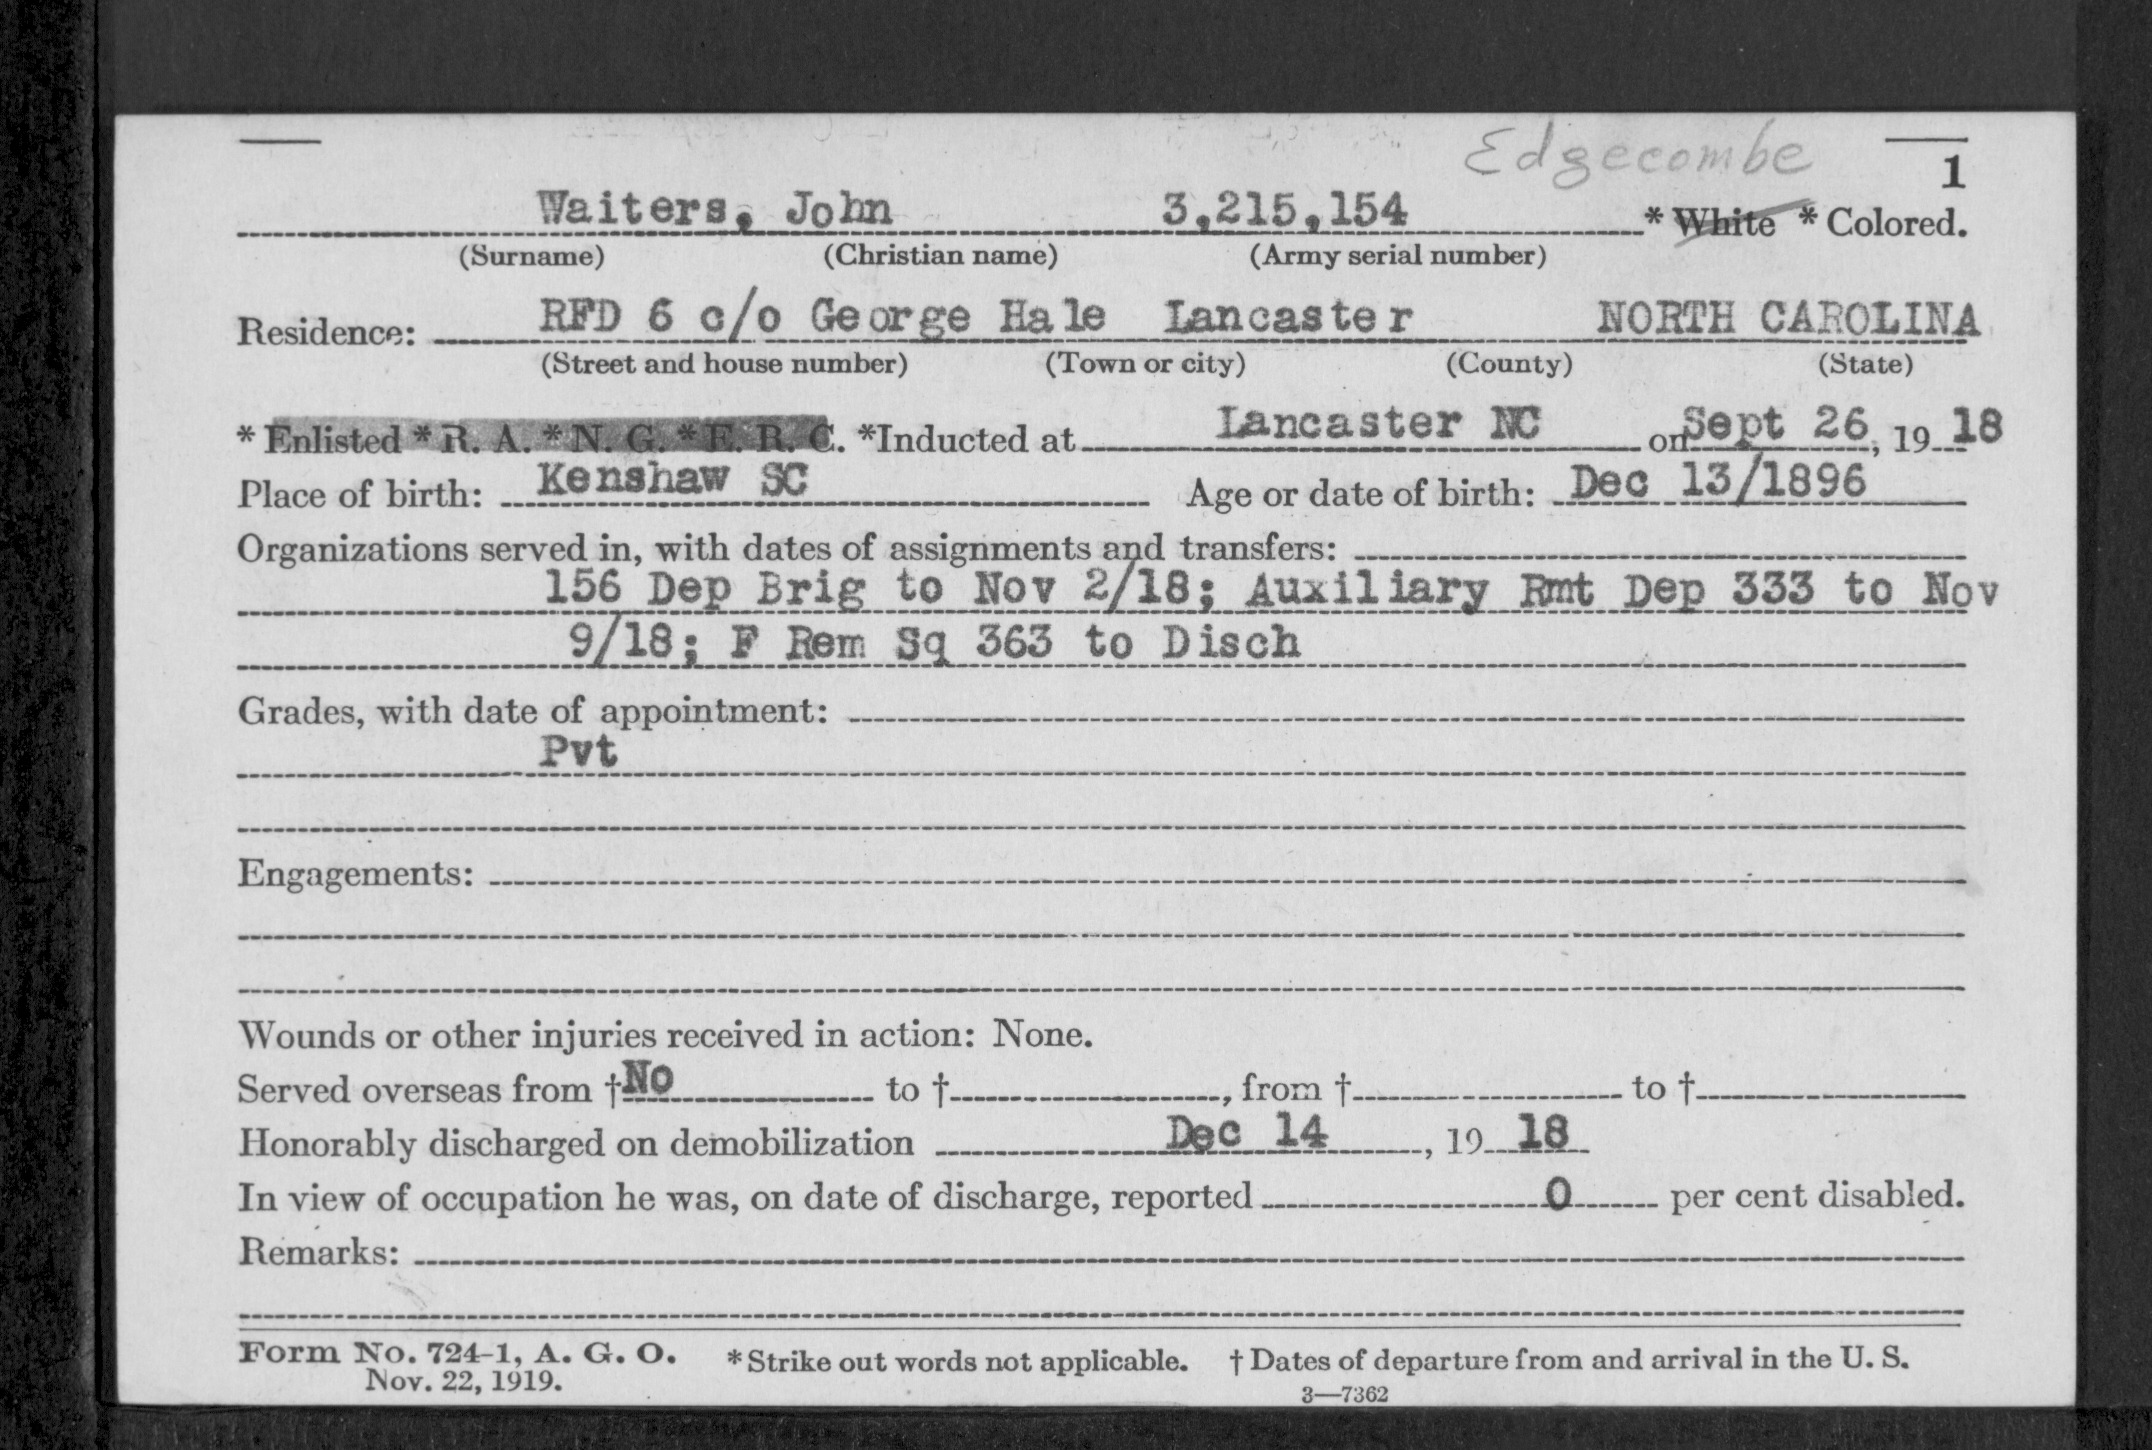 Edgecombe
1
Waiters, John 3,215,154 * White * Colored.
(Surname) (Christian name) (Army serial number)
Residence: RFD 6 c/o George Hale Lancaster NORTH CAROLINA
(Street and house number) (Town or city) (County) (State)
* Enlisted * R. A. * N. G. * E. R. C. *Inducted at Lancaster NC on Sept 26, 19 18
Place of birth: Kenshaw SC Age or date of birth: Dec 13/1896
Organizations served in, with dates of assignments and transfers:
156 Dep Brig to Nov 2/18; Auxiliary Rmt Dep 333 to Nov
9/18; F Rem Sq 363 to Disch
Grades, with date of appointment:
Pvt
Engagements:
Wounds or other injuries received in action: None.
Served overseas from †No to †, from † to †
Honorably discharged on demobilization Dec 14, 19 18
In view of occupation he was, on date of discharge, reported 0 per cent disabled.
Remarks:
Form No. 724-1, A. G. O. *Strike out words not applicable. † Dates of departure from and arrival in the U. S.
Nov. 22, 1919.
3—7362